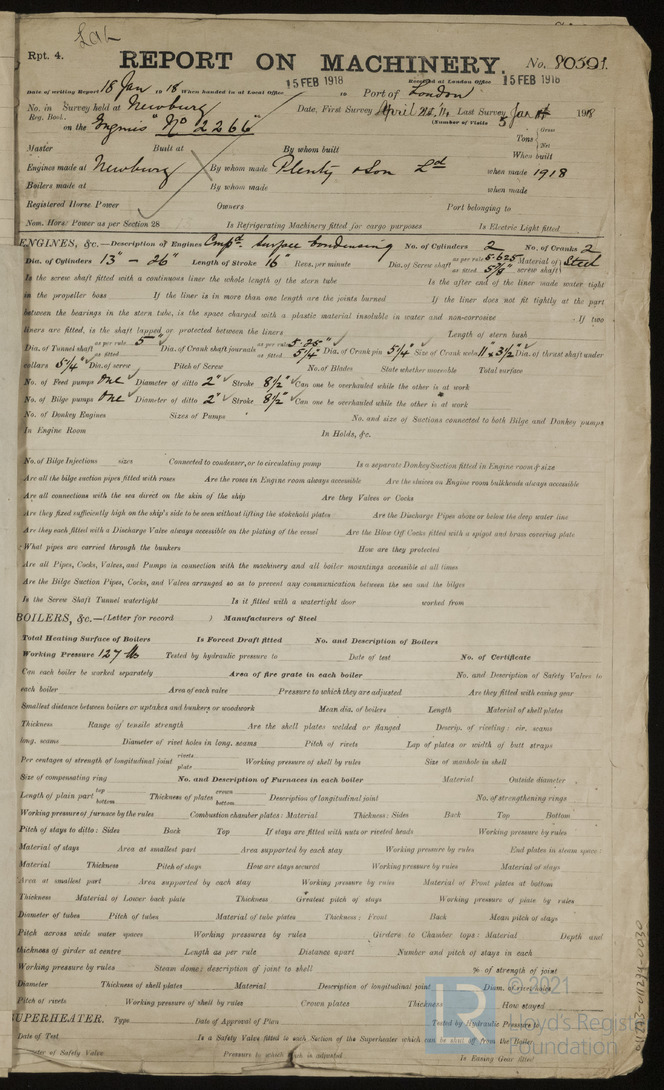 Rpt. 4.
REPORT ON MACHINERY. No. 80591.
15 FEB 1918 Received at London Office 15 FEB 1918
Date of writing Report 18 Jan 1918 When handed in at Local Office 19 Port of London
No. in Survey held at Newbury Date, First Survey April Last Survey Jan 1918
Reg. Book. (Number of Visits 5
on the Engines "No 2266" Tons { Gross Net
Master Built at By whom built When built
Engines made at Newbury By whom made Plenty & Son Ld when made 1918
Boilers made at By whom made when made
Registered Horse Power Owners Port belonging to
Nom. Horse Power as per Section 28 Is Refrigerating Machinery fitted for cargo purposes Is Electric Light fitted
ENGINES, &c.—Description of Engines Compd. surface condensing No. of Cylinders 2 No. of Cranks 2
Dia. of Cylinders 13" - 26" Length of Stroke 16" Revs. per minute Dia. of Screw shaft as per rule 5.625 as fitted 5 7/8" Material of screw shaft Steel
Is the screw shaft fitted with a continuous liner the whole length of the stern tube Is the after end of the liner made water tight
in the propeller boss If the liner is in more than one length are the joints burned If the liner does not fit tightly at the part
between the bearings in the stern tube, is the space charged with a plastic material insoluble in water and non-corrosive If two
liners are fitted, is the shaft lapped or protected between the liners Length of stern bush
Dia. of Tunnel shaft as per rule 5" as fitted Dia. of Crank shaft journals as per rule 5.25" as fitted 5 1/4" Dia. of Crank pin 5 1/4" Size of Crank webs 11" x 3 1/2" Dia. of thrust shaft under
collars 5 1/4" Dia. of screw Pitch of Screw No. of Blades State whether moveable Total surface
No. of Feed pumps One Diameter of ditto 2" Stroke 8 1/2" Can one be overhauled while the other is at work
No. of Bilge pumps One Diameter of ditto 2" Stroke 8 1/2" Can one be overhauled while the other is at work
No. of Donkey Engines Sizes of Pumps No. and size of Suctions connected to both Bilge and Donkey pumps
In Engine Room In Holds, &c.
No. of Bilge Injections sizes Connected to condenser, or to circulating pump Is a separate Donkey Suction fitted in Engine room & size
Are all the bilge suction pipes fitted with roses Are the roses in Engine room always accessible Are the sluices on Engine room bulkheads always accessible
Are all connections with the sea direct on the skin of the ship Are they Valves or Cocks
Are they fixed sufficiently high on the ship's side to be seen without lifting the stokehold plates Are the Discharge Pipes above or below the deep water line
Are they each fitted with a Discharge Valve always accessible on the plating of the vessel Are the Blow Off Cocks fitted with a spigot and brass covering plate
What pipes are carried through the bunkers How are they protected
Are all Pipes, Cocks, Valves, and Pumps in connection with the machinery and all boiler mountings accessible at all times
Are the Bilge Suction Pipes, Cocks, and Valves arranged so as to prevent any communication between the sea and the bilges
Is the Screw Shaft Tunnel watertight Is it fitted with a watertight door worked from
BOILERS, &c.—(Letter for record ) Manufacturers of Steel
Total Heating Surface of Boilers Is Forced Draft fitted No. and Description of Boilers
Working Pressure 127 lb Tested by hydraulic pressure to Date of test No. of Certificate
Can each boiler be worked separately Area of fire grate in each boiler No. and Description of Safety Valves to
each boiler Area of each valve Pressure to which they are adjusted Are they fitted with easing gear
Smallest distance between boilers or uptakes and bunkers or woodwork Mean dia. of boilers Length Material of shell plates
Thickness Range of tensile strength Are the shell plates welded or flanged Descrip. of riveting: cir. seams
long. seams Diameter of rivet holes in long. seams Pitch of rivets Lap of plates or width of butt straps
Per centages of strength of longitudinal joint rivets plate Working pressure of shell by rules Size of manhole in shell
Size of compensating ring No. and Description of Furnaces in each boiler Material Outside diameter
Length of plain part top bottom Thickness of plates crown bottom Description of longitudinal joint No. of strengthening rings
Working pressure of furnace by the rules Combustion chamber plates: Material Thickness: Sides Back Top Bottom
Pitch of stays to ditto: Sides Back Top If stays are fitted with nuts or riveted heads Working pressure by rules
Material of stays Area at smallest part Area supported by each stay Working pressure by rules End plates in steam space:
Material Thickness Pitch of stays How are stays secured Working pressure by rules Material of stays
Area at smallest part Area supported by each stay Working pressure by rules Material of Front plates at bottom
Thickness Material of Lower back plate Thickness Greatest pitch of stays Working pressure of plate by rules
Diameter of tubes Pitch of tubes Material of tube plates Thickness: Front Back Mean pitch of stays
Pitch across wide water spaces Working pressures by rules Girders to Chamber tops: Material Depth and
thickness of girder at centre Length as per rule Distance apart Number and pitch of stays in each
Working pressure by rules Steam dome: description of joint to shell % of strength of joint
Diameter Thickness of shell plates Material Description of longitudinal joint Diam. of rivet holes
Pitch of rivets Working pressure of shell by rules Crown plates Thickness How stayed
SUPERHEATER. Type Date of Approval of Plan Tested by Hydraulic Pressure to
Date of Test Is a Safety Valve fitted to each Section of the Superheater which can be shut off from the Boiler
Diameter of Safety Valve Pressure to which each is adjusted Is Easing Gear fitted
© 2021
Lloyd's Register
Foundation